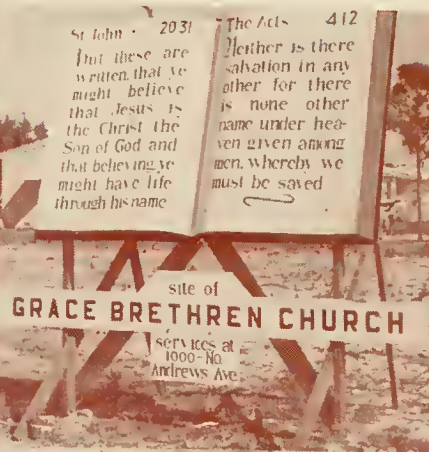 St John · 20 31
But these are
written, that ye
might believe
that Jesus is
the Christ the
Son of God and
that believing ye
might have life
through his name
The Acts 4 12
Neither is there
salvation in any
other for there
is none other
name under hea-
ven given among
men, whereby we
must be saved
site of
GRACE BRETHREN CHURCH
services at
1000-No.
Andrews Ave.